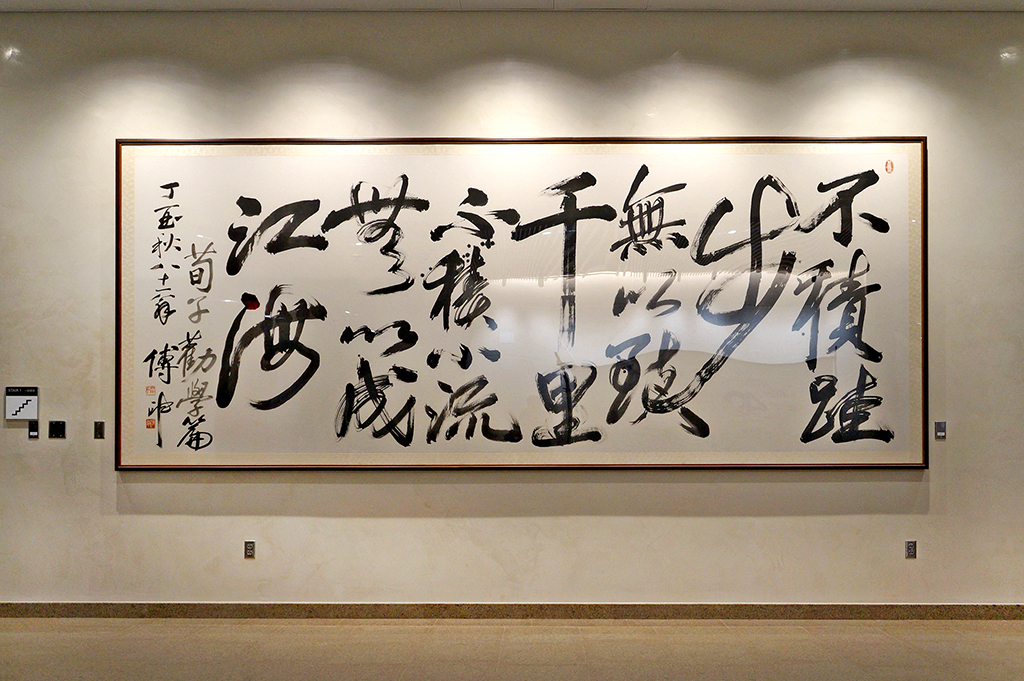 不積蹞
步
無以致
千里
不積小流
無以成
江海
荀子勸學篇
丁酉秋八十一翁
傅申
STAIR 1